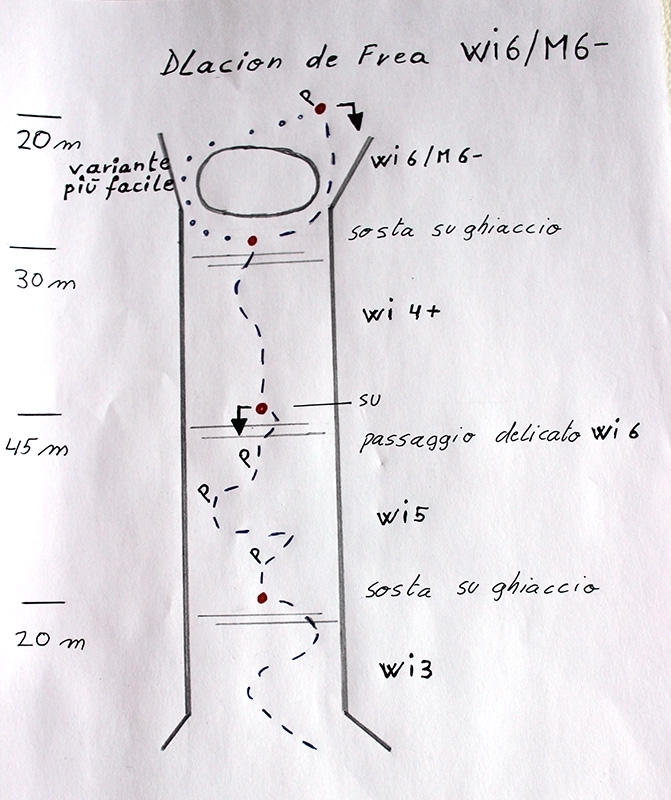 DLacion de Frea Wi6/M6-
P
20 m
variante
più facile
wi6/M6-
sosta su ghiaccio
30 m
wi 4+
su
45 m
passaggio delicato wi 6
P
P
wi5
P
sosta su ghiaccio
20 m
wi3